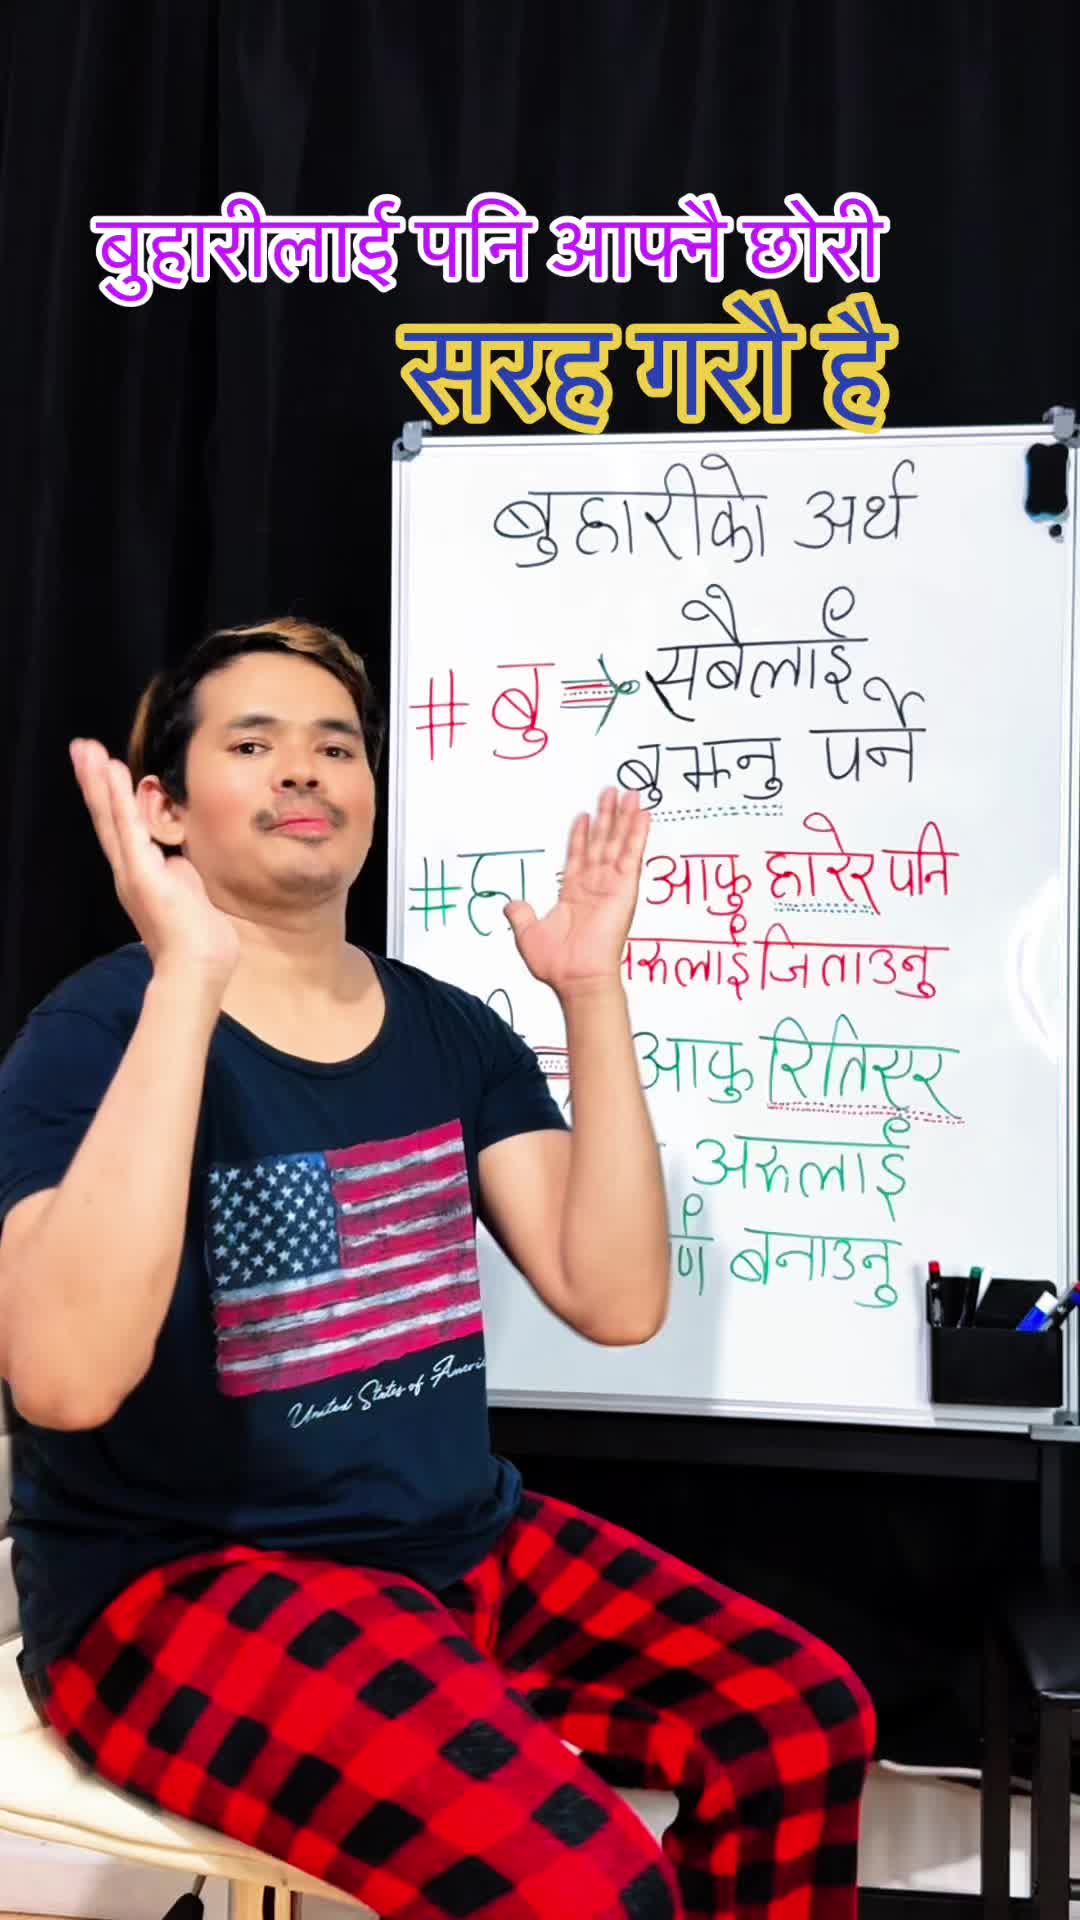 बुहारीलाई पनि आफ्नै छोरी
सरह गरौ है
बुहारीको अर्थ
# बु ⇒ सबैलाई
बुझ्नु पर्ने
# हा आफु हारेर पनि
अरुलाई जिताउनु
आफु रित्तिएर
अरुलाई
बनाउनु
United States of Americ